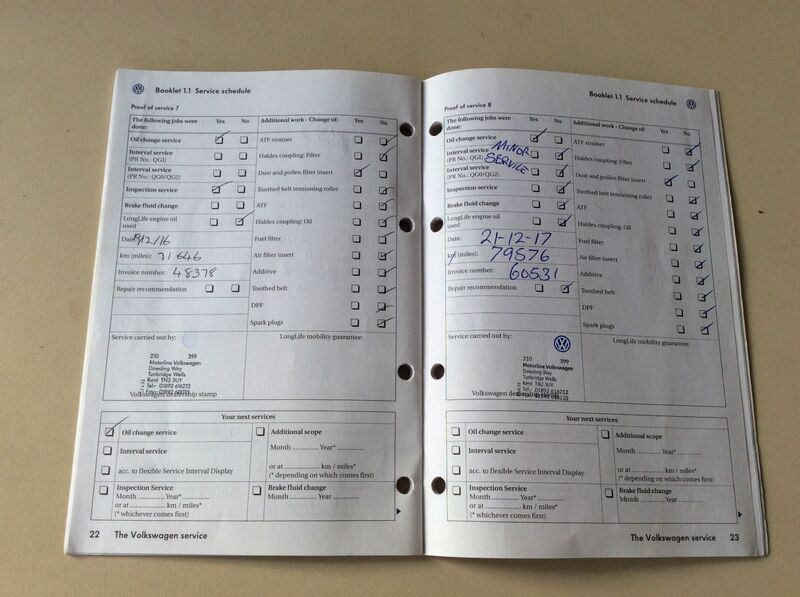 Booklet 1.1 Service schedule
Proof of service 7
The following jobs were done: Yes No
Oil change service
Interval service
(PR No.: QG1)
Interval service
(PR No.: QG0/QG2)
Inspection service
Brake fluid change
LongLife engine oil used
Date: 12/16
km (miles): 71646
Invoice number: 48378
Repair recommendation
Additional work - Change of: Yes No
ATF strainer
Haldex coupling: Filter
Dust and pollen filter insert
Toothed belt tensioning roller
ATF
Haldex coupling: Oil
Fuel filter
Air filter insert
Additive
Toothed belt
DPF
Spark plugs
Service carried out by:
LongLife mobility guarantee:
210 399
Motorline Volkswagen
Dowding Way
Tunbridge Wells
Kent TN2 3UY
Tel:- 01892 616212
Volkswagen dealership stamp
Your next services
Oil change service
Interval service
acc. to flexible Service Interval Display
Inspection Service
Month Year*
or at km / miles*
(* whichever comes first)
Additional scope
Month Year*
or at km / miles*
(* depending on which comes first)
Brake fluid change
Month Year
22 The Volkswagen service
Booklet 1.1 Service schedule
Proof of service 8
The following jobs were done: Yes No
Oil change service
Interval service
(PR No.: QG1)
Interval service
(PR No.: QG0/QG2)
MINOR
SERVICE
Inspection service
Brake fluid change
LongLife engine oil used
Date: 21-12-17
km (miles): 79576
Invoice number: 60531
Repair recommendation
Additional work - Change of: Yes No
ATF strainer
Haldex coupling: Filter
Dust and pollen filter insert
Toothed belt tensioning roller
ATF
Haldex coupling: Oil
Fuel filter
Air filter insert
Additive
Toothed belt
DPF
Spark plugs
Service carried out by:
LongLife mobility guarantee:
210 399
Motorline Volkswagen
Dowding Way
Tunbridge Wells
Kent TN2 3UY
Tel:- 01892 616212
Volkswagen dealership
Your next services
Oil change service
Interval service
acc. to flexible Service Interval Display
Inspection Service
Month Year*
or at km / miles*
(* whichever comes first)
Additional scope
Month Year*
or at km / miles*
(* depending on which comes first)
Brake fluid change
Month Year
The Volkswagen service 23